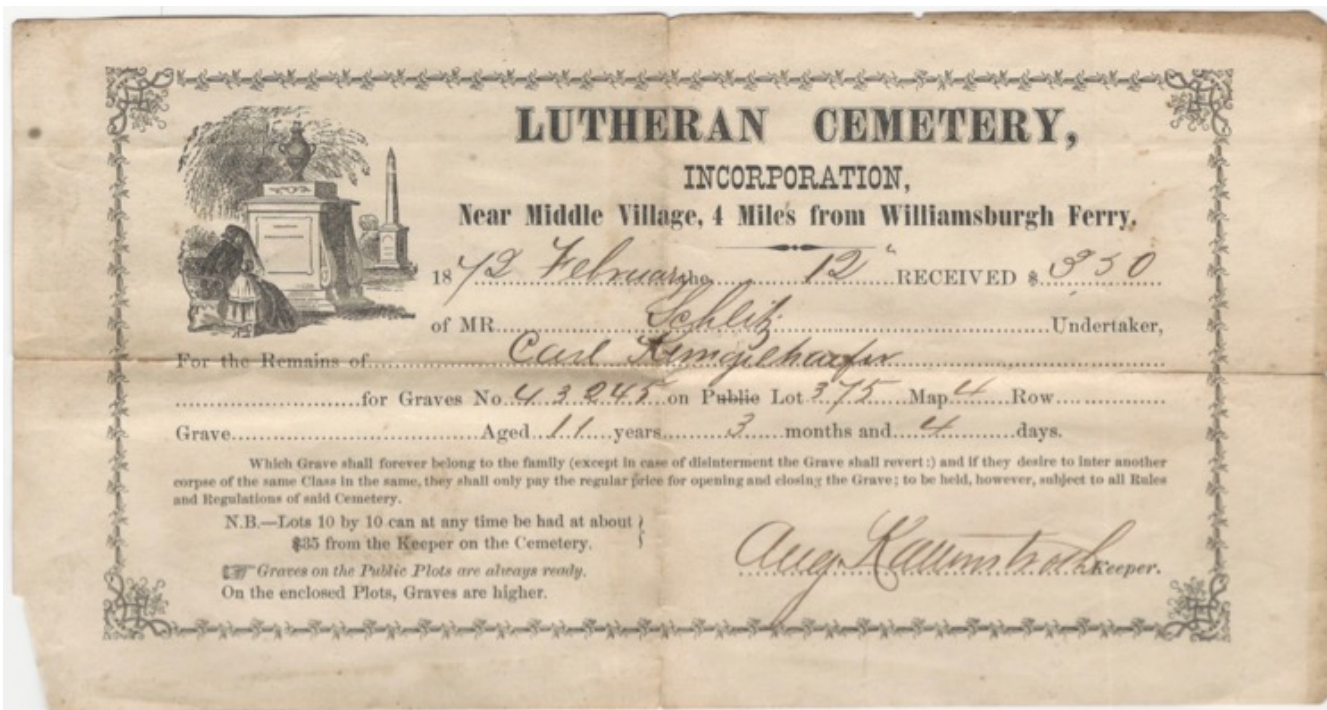 LUTHERAN CEMETERY,
INCORPORATION,
Near Middle Village, 4 Miles from Williamsburgh Ferry.
1872 February the 12" RECEIVED $ 350
of MR Schlitz Undertaker,
For the Remains of Carl
for Graves No. 43245 on Public Lot 375 Map 4 Row
Grave Aged 11 years 3 months and 4 days.
Which Grave shall forever belong to the family (except in case of disinterment the Grave shall revert:) and if they desire to inter another
corpse of the same Class in the same, they shall only pay the regular price for opening and closing the Grave; to be held, however, subject to all Rules
and Regulations of said Cemetery.
N.B.—Lots 10 by 10 can at any time be had at about
$35 from the Keeper on the Cemetery.
☞ Graves on the Public Plots are always ready.
On the enclosed Plots, Graves are higher.
Aug. Keeper.